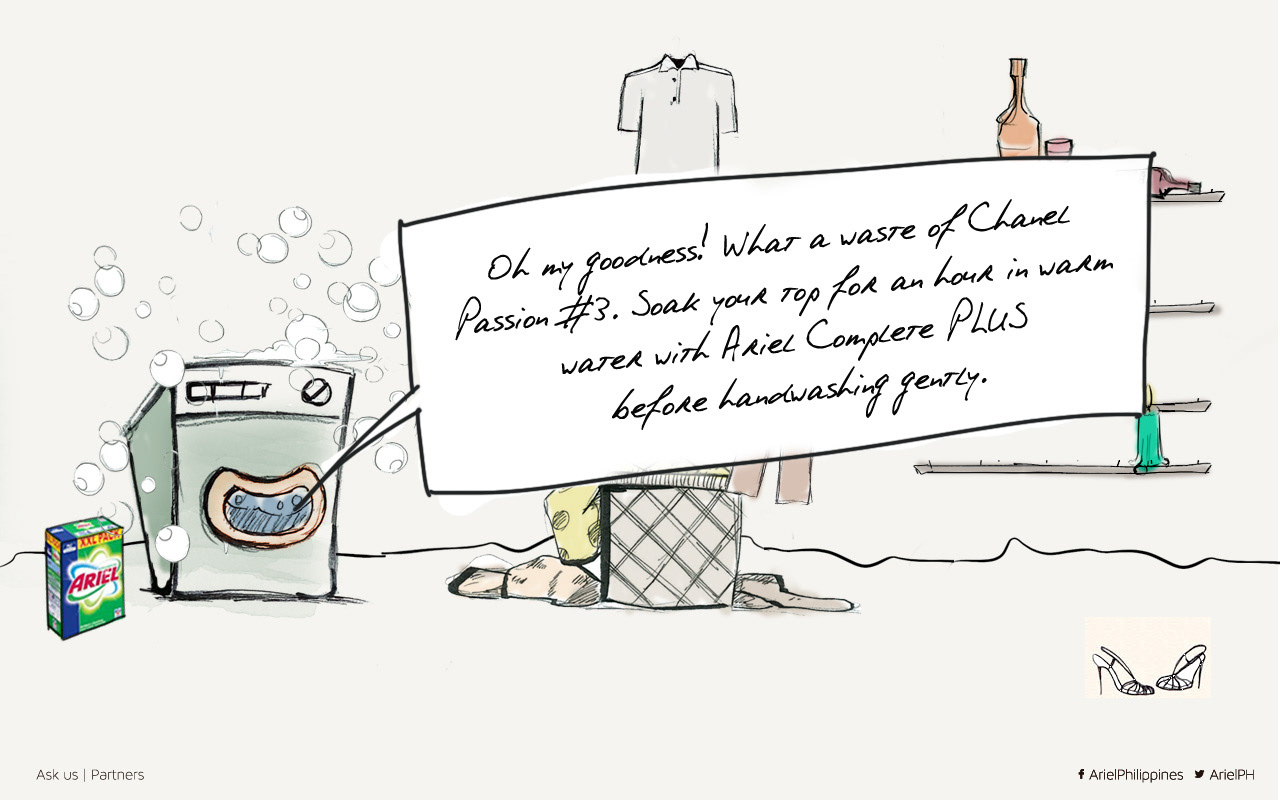 Oh my goodness! What a waste of Chanel
Passion #3. Soak your top for an hour in warm
water with Ariel Complete PLUS
before handwashing gently.
XXL PACK
ARIEL
Ask us | Partners
ArielPhilippines ArielPH